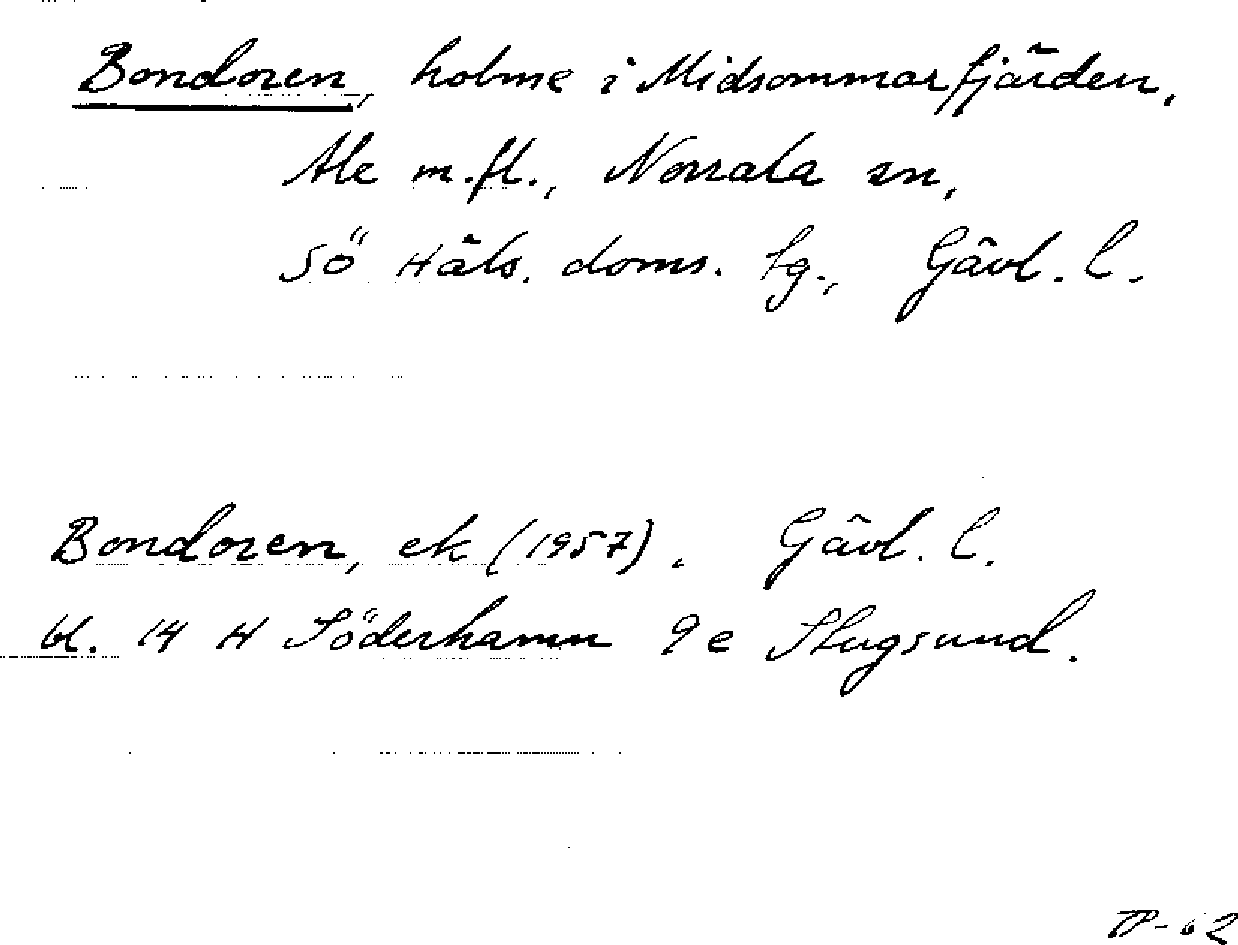 Bondoren, holme i Midsommarfjärden,
Ale m.fl., Norrala sn,
Sö Häls. doms. fg., Gävl. l.
Bondoren, ek (1957). Gävl. l.
bl. 14 H Söderhamn 9 e Stugsund.
TP-62